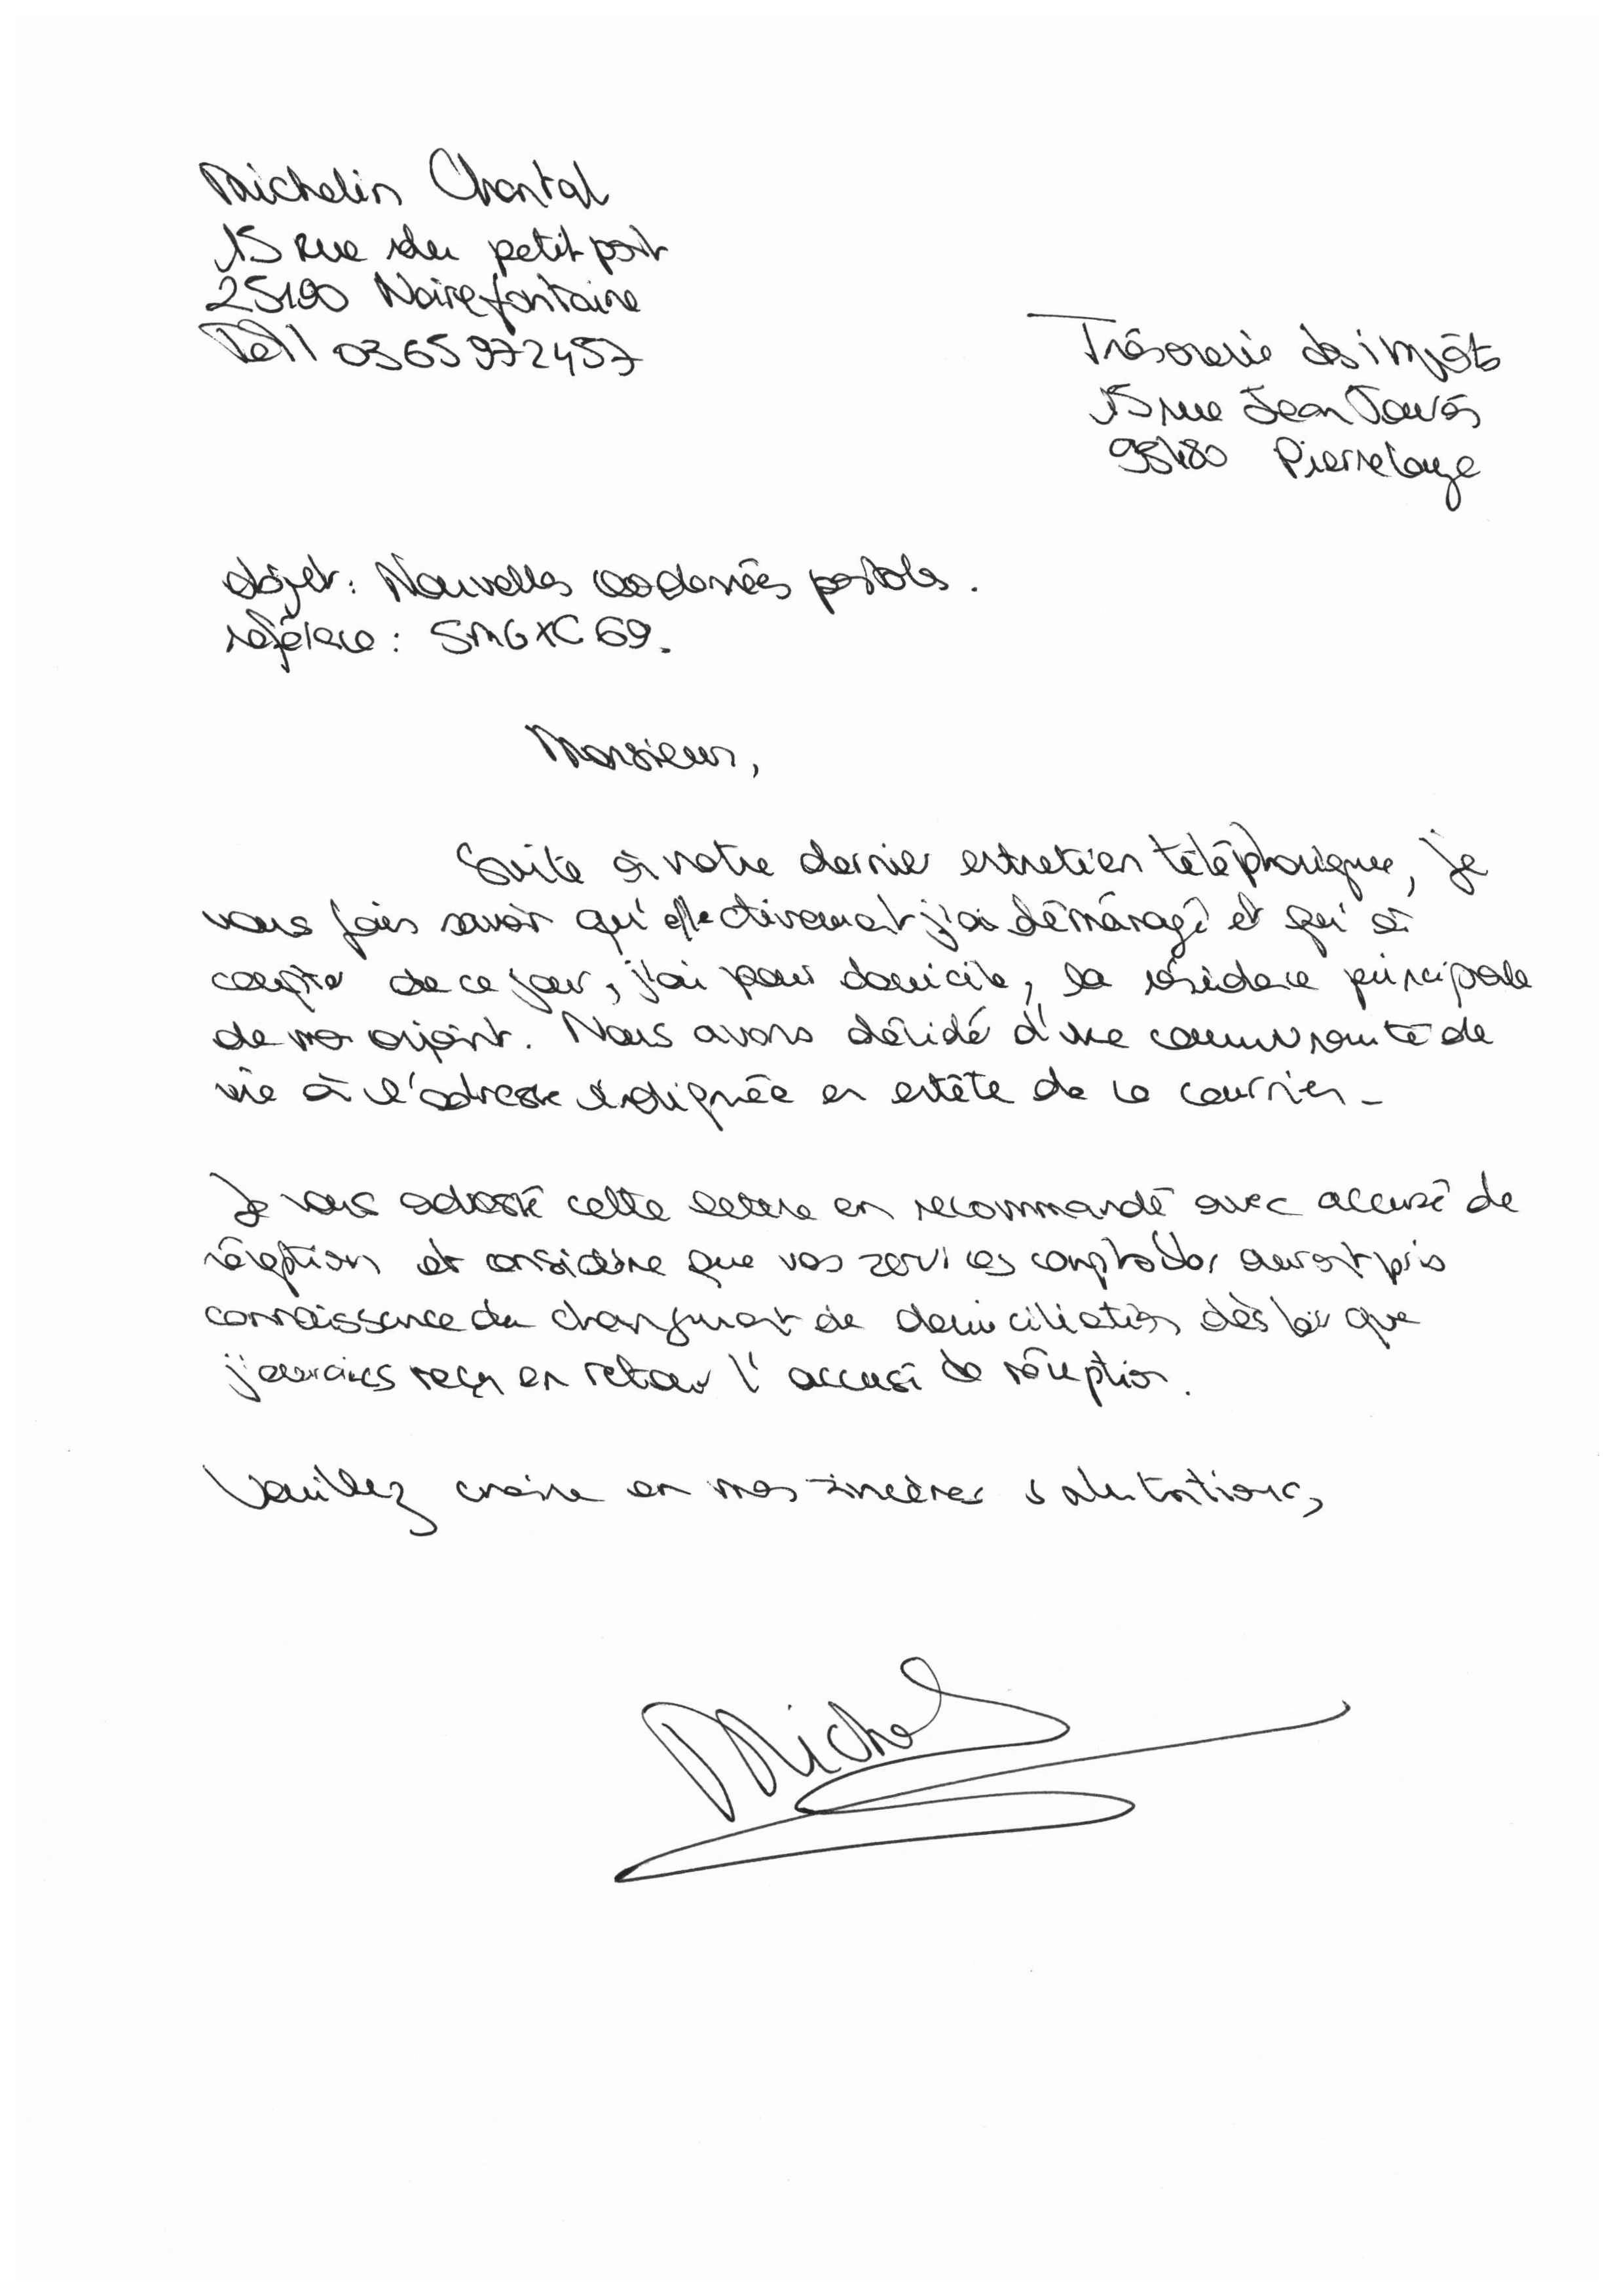 Michelin Chantal
15 Rue du petit port
25190 Noirefontaine
Tél 0365972457
Trésorerie des impôts
15 rue Jean Jaurès
95480 Pierrelaye
objet : Nouvelles coodonnées postales.
référence : SMGXC69.
Monsieur,
Suite à notre dernier entretien téléphonique, je
vous fais savoir qu'effectivement j'ai déménagé et qu'à
compter de ce jour, j'ai pour domicile, la résidence principale
de mon conjoint. Nous avons décidé d'une communauté de
vie à l'adresse indiquée en entête de ce courrier.
Je vous adresse cette lettre en recommandé avec accusé de
réception et considère que vos services comptables auront pris
connaissance du changement de domiciliation dès lors que
j'aurais reçu en retour l'accusé de réception.
Veuillez croire en mes sincères salutations,
Michel